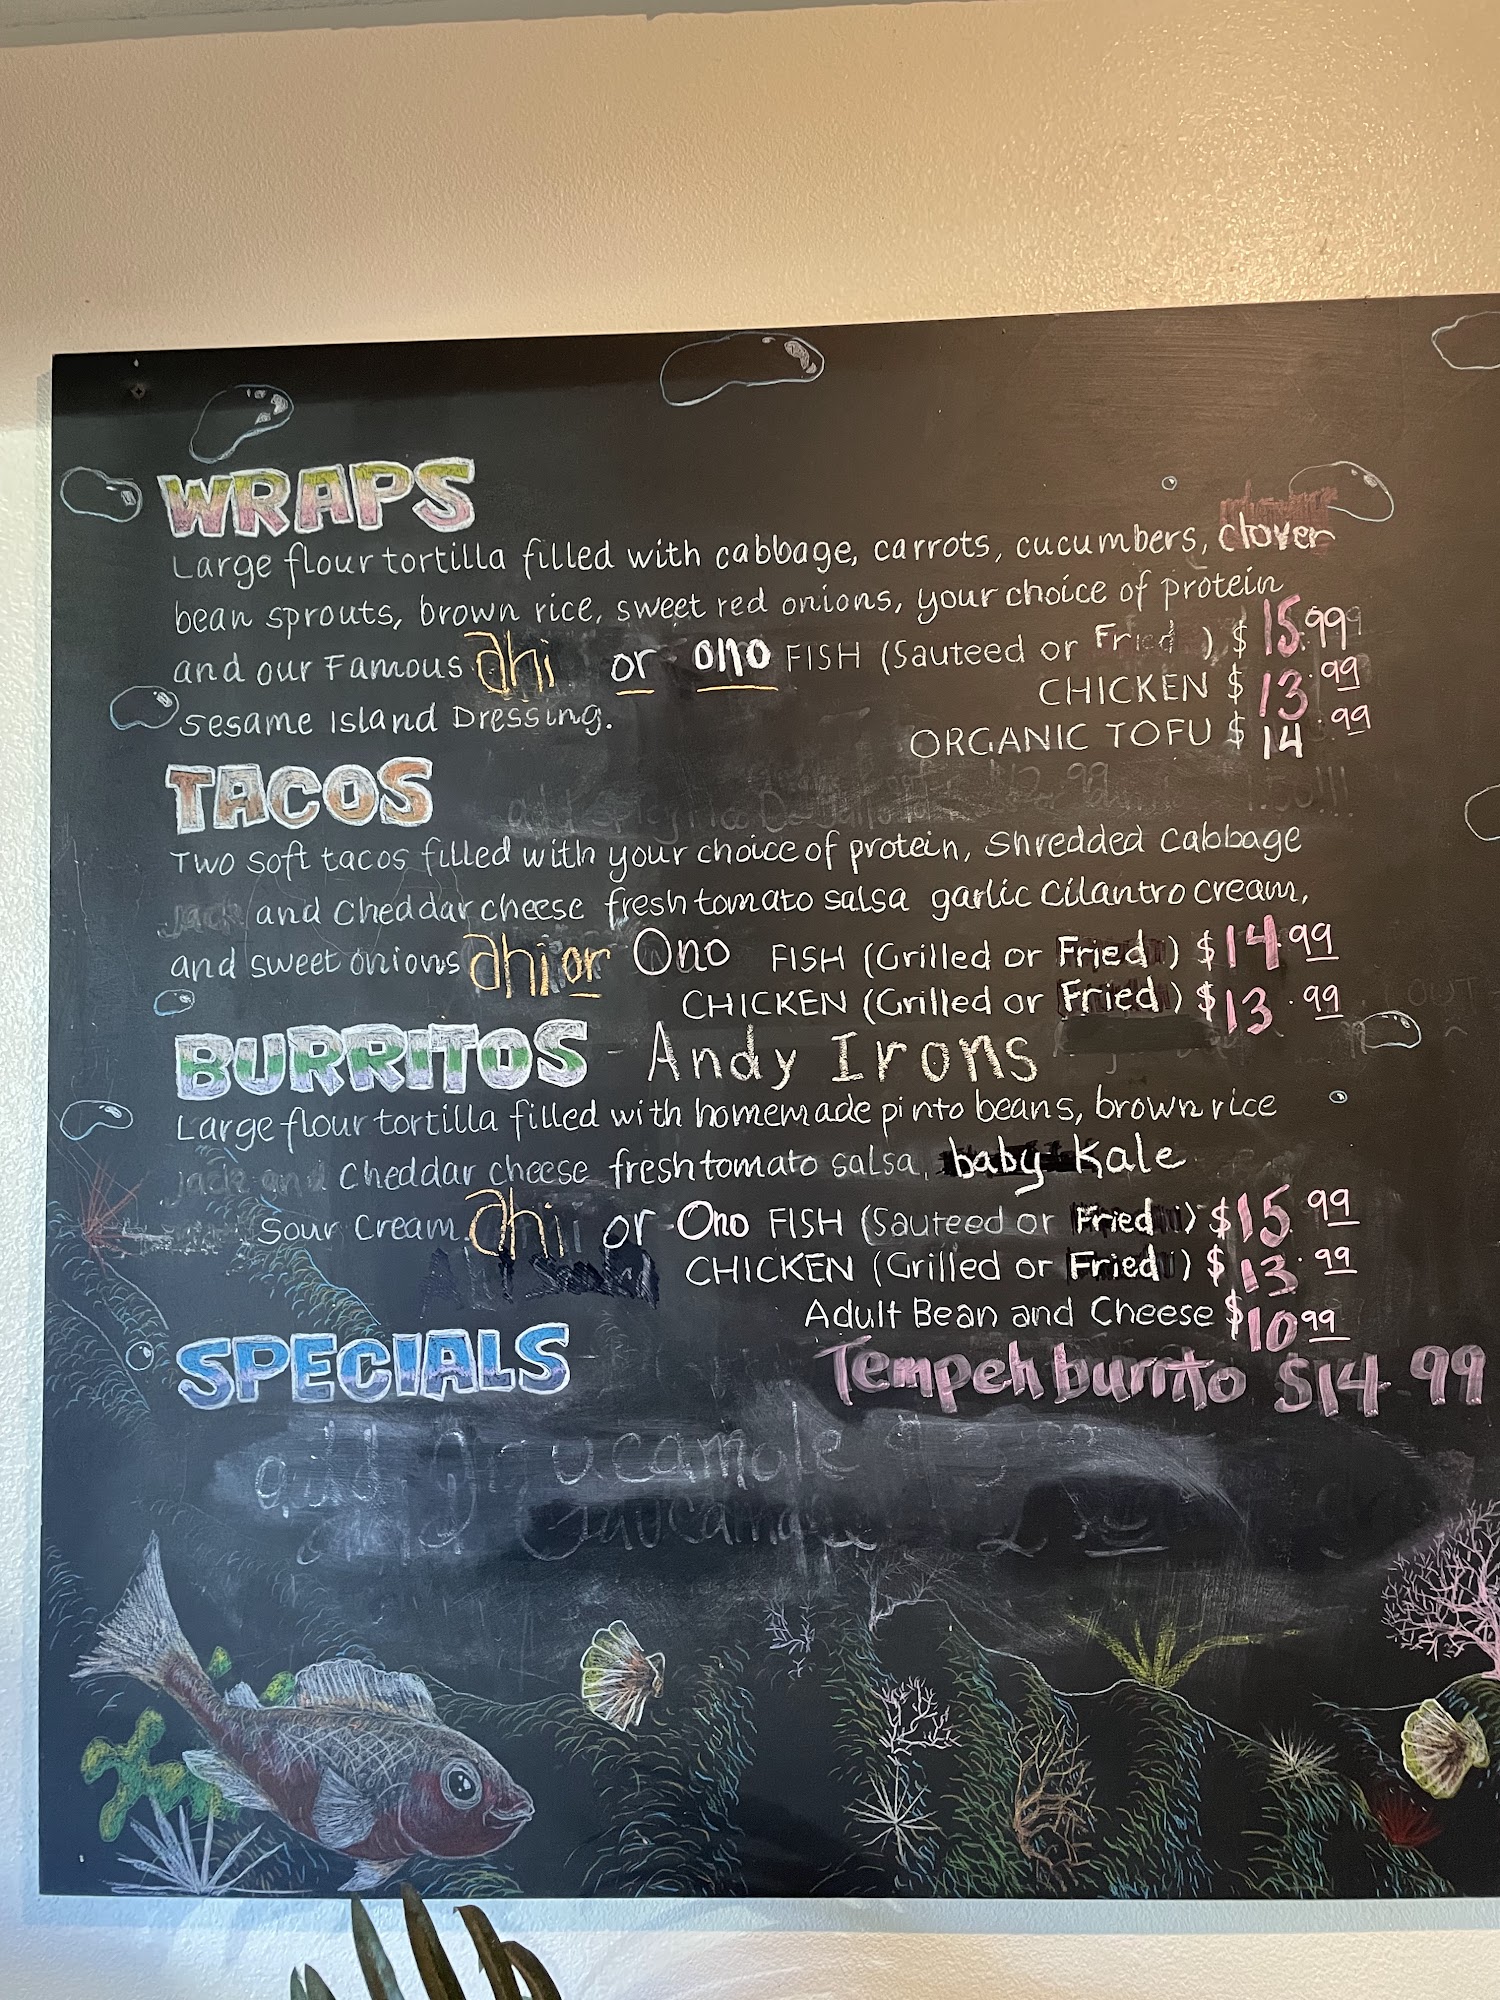 WRAPS
Large flour tortilla filled with cabbage, carrots, cucumbers, clover
bean sprouts, brown rice, sweet red onions, your choice of protein
and our Famous Ahi or ono FISH (Sauteed or Fried ) $ 15.99
Sesame Island Dressing. CHICKEN $ 13.99
ORGANIC TOFU $ 14.99
TACOS
Two soft tacos filled with your choice of protein, Shredded Cabbage
Jack and Cheddar cheese fresh tomato salsa garlic Cilantro cream,
and sweet onions Ahi or Ono FISH (Grilled or Fried ) $14.99
CHICKEN (Grilled or Fried ) $13.99
BURRITOS - Andy Irons
Large flour tortilla filled with homemade pinto beans, brown rice
Jack and Cheddar cheese fresh tomato salsa, baby Kale
Sour Cream, Ahi or Ono FISH (Sauteed or Fried ) $15.99
CHICKEN (Grilled or Fried ) $13.99
Adult Bean and Cheese $10.99
SPECIALS
Tempeh burrito $14.99